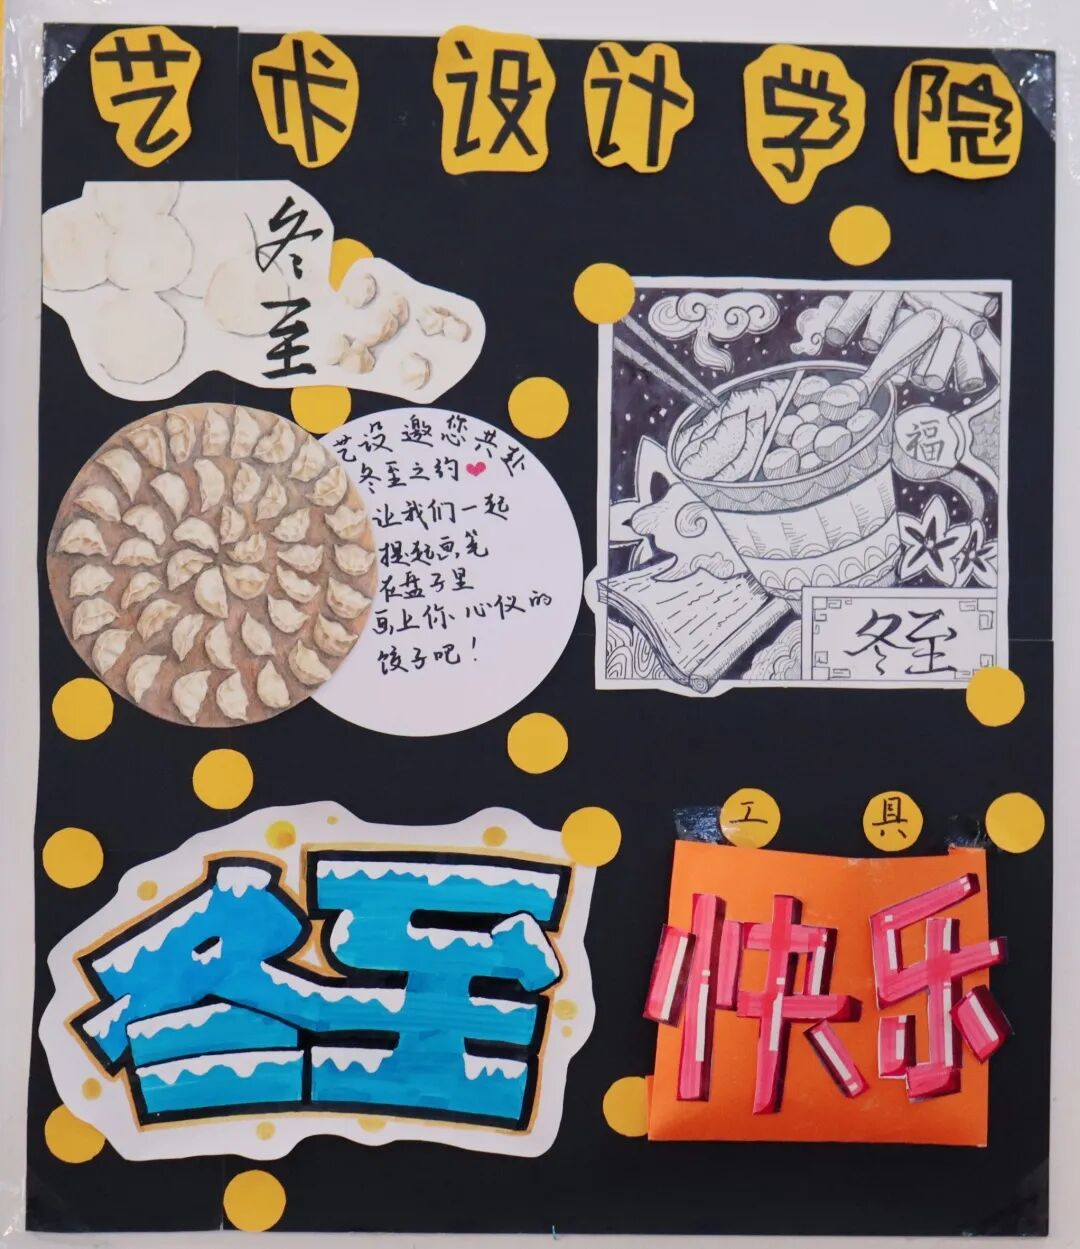 艺术设计学院
冬至
艺设邀您共赴
冬至之约
让我们一起
提起画笔
在盘子里
画上你心仪的
饺子吧！
福
冬至
冬至
工具
快乐